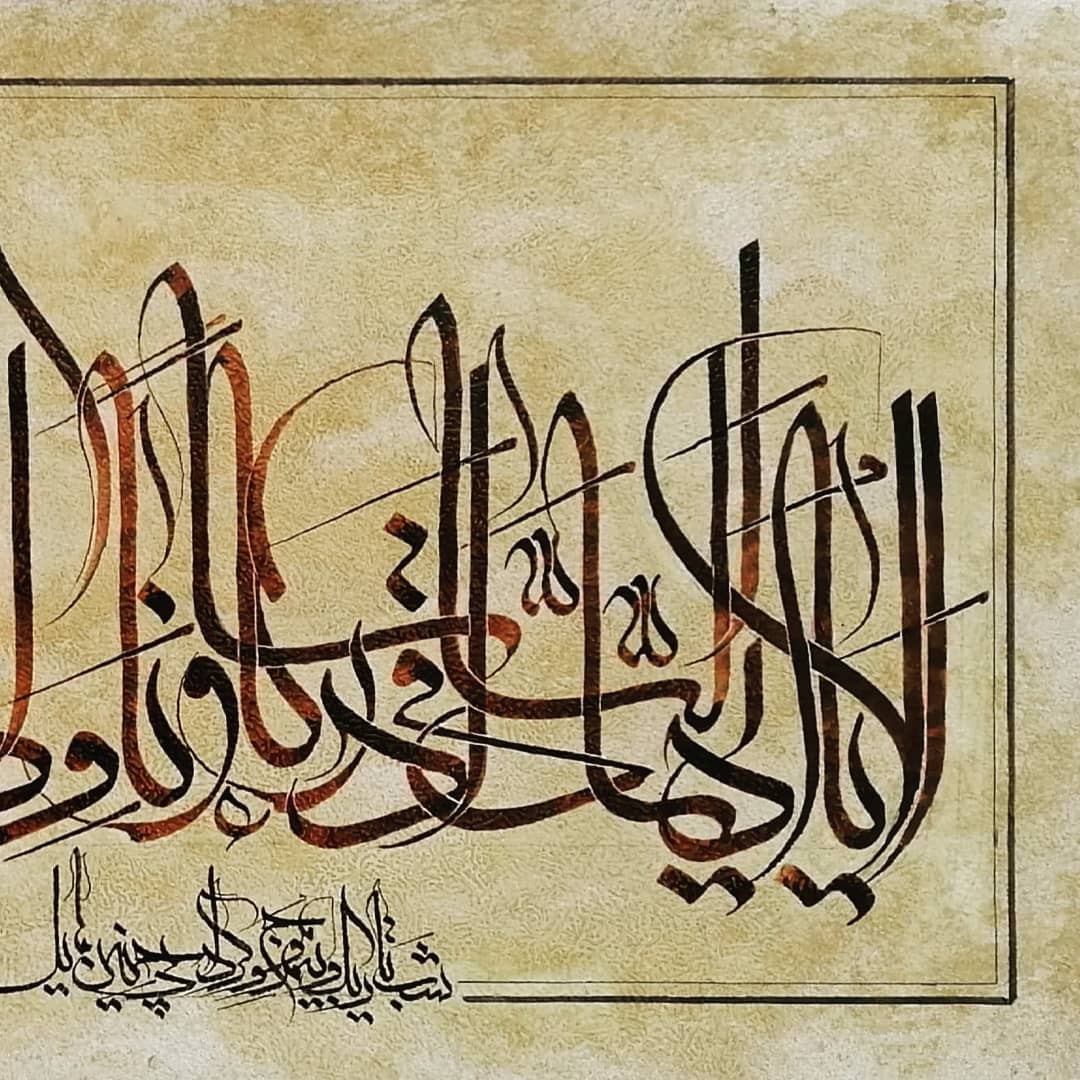 الا یا ایها الساقی ادر کاسا و ناولها
شب تاریک و بیم موج و گردابی چنین هایل